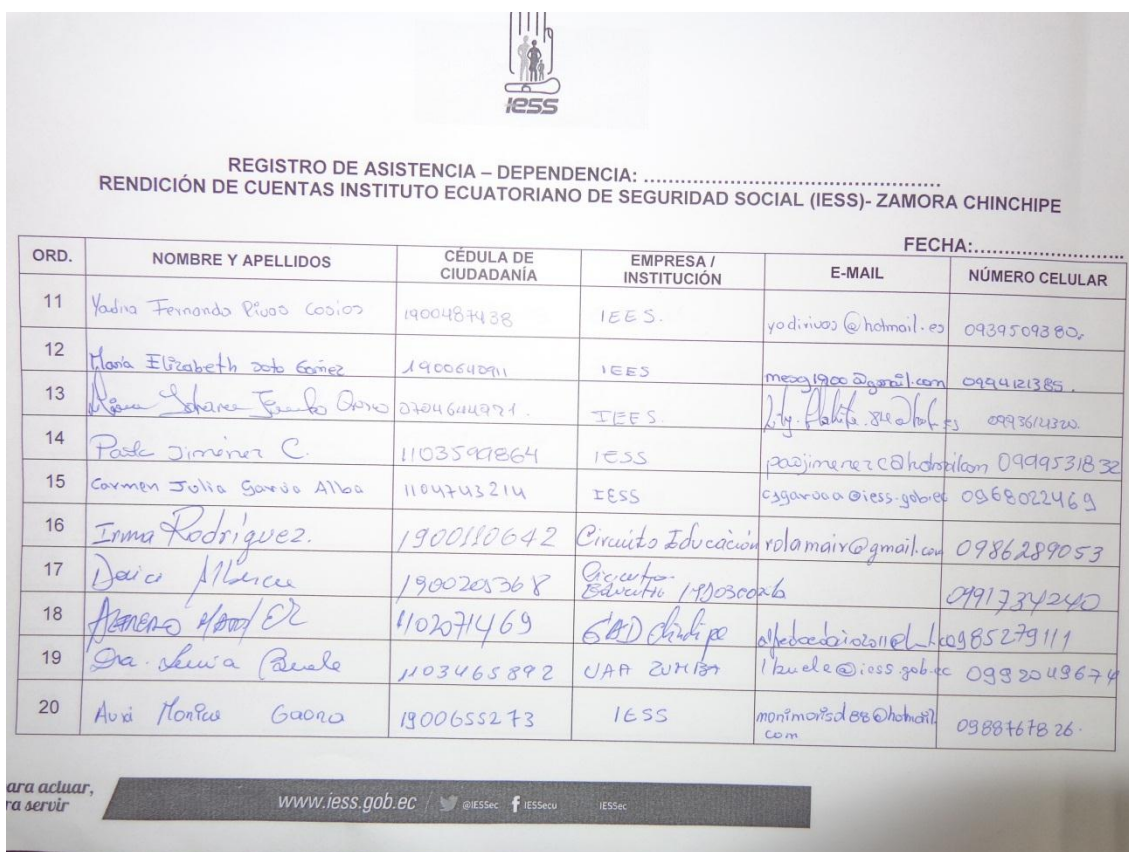 iess
REGISTRO DE ASISTENCIA – DEPENDENCIA: ................................................
RENDICIÓN DE CUENTAS INSTITUTO ECUATORIANO DE SEGURIDAD SOCIAL (IESS)- ZAMORA CHINCHIPE
FECHA:........................
ORD. NOMBRE Y APELLIDOS CÉDULA DE CIUDADANÍA EMPRESA / INSTITUCIÓN E-MAIL NÚMERO CELULAR
11 Yadira Fernando Rivas Cosios 1900487438 IEES. yodirivos@hotmail.es 0939509380.
12 María Elizabeth Soto Gómez 1900640911 IEES mesg1900@gmail.com 0994121385.
13 Johanna 0704644971. IEES. 0993614320.
14 Jiménez C. 1103599864 IESS paojimenezc@hotmail.com 0999531832
15 Carmen Julia García Alba 1104743214 IESS csgarcoa@iess.gob.ec 0968022469
16 Irma Rodríguez. 1900110642 Circuito Educación rolamair@gmail.com 0986289053
17 1900205368 Circuito Educativo 0991734240
18 1102071469 GAD Chinchipe 0985279111
19 Dra. 1103465892 UAA ZUMBA lbuele@iess.gob.ec 0992049674
20 Monica Gaona 1900655273 IESS monimorisd88@hotmail.com 0988767826.
ara actuar,
ra servir
www.iess.gob.ec / @IESSec IESSecu IESSec